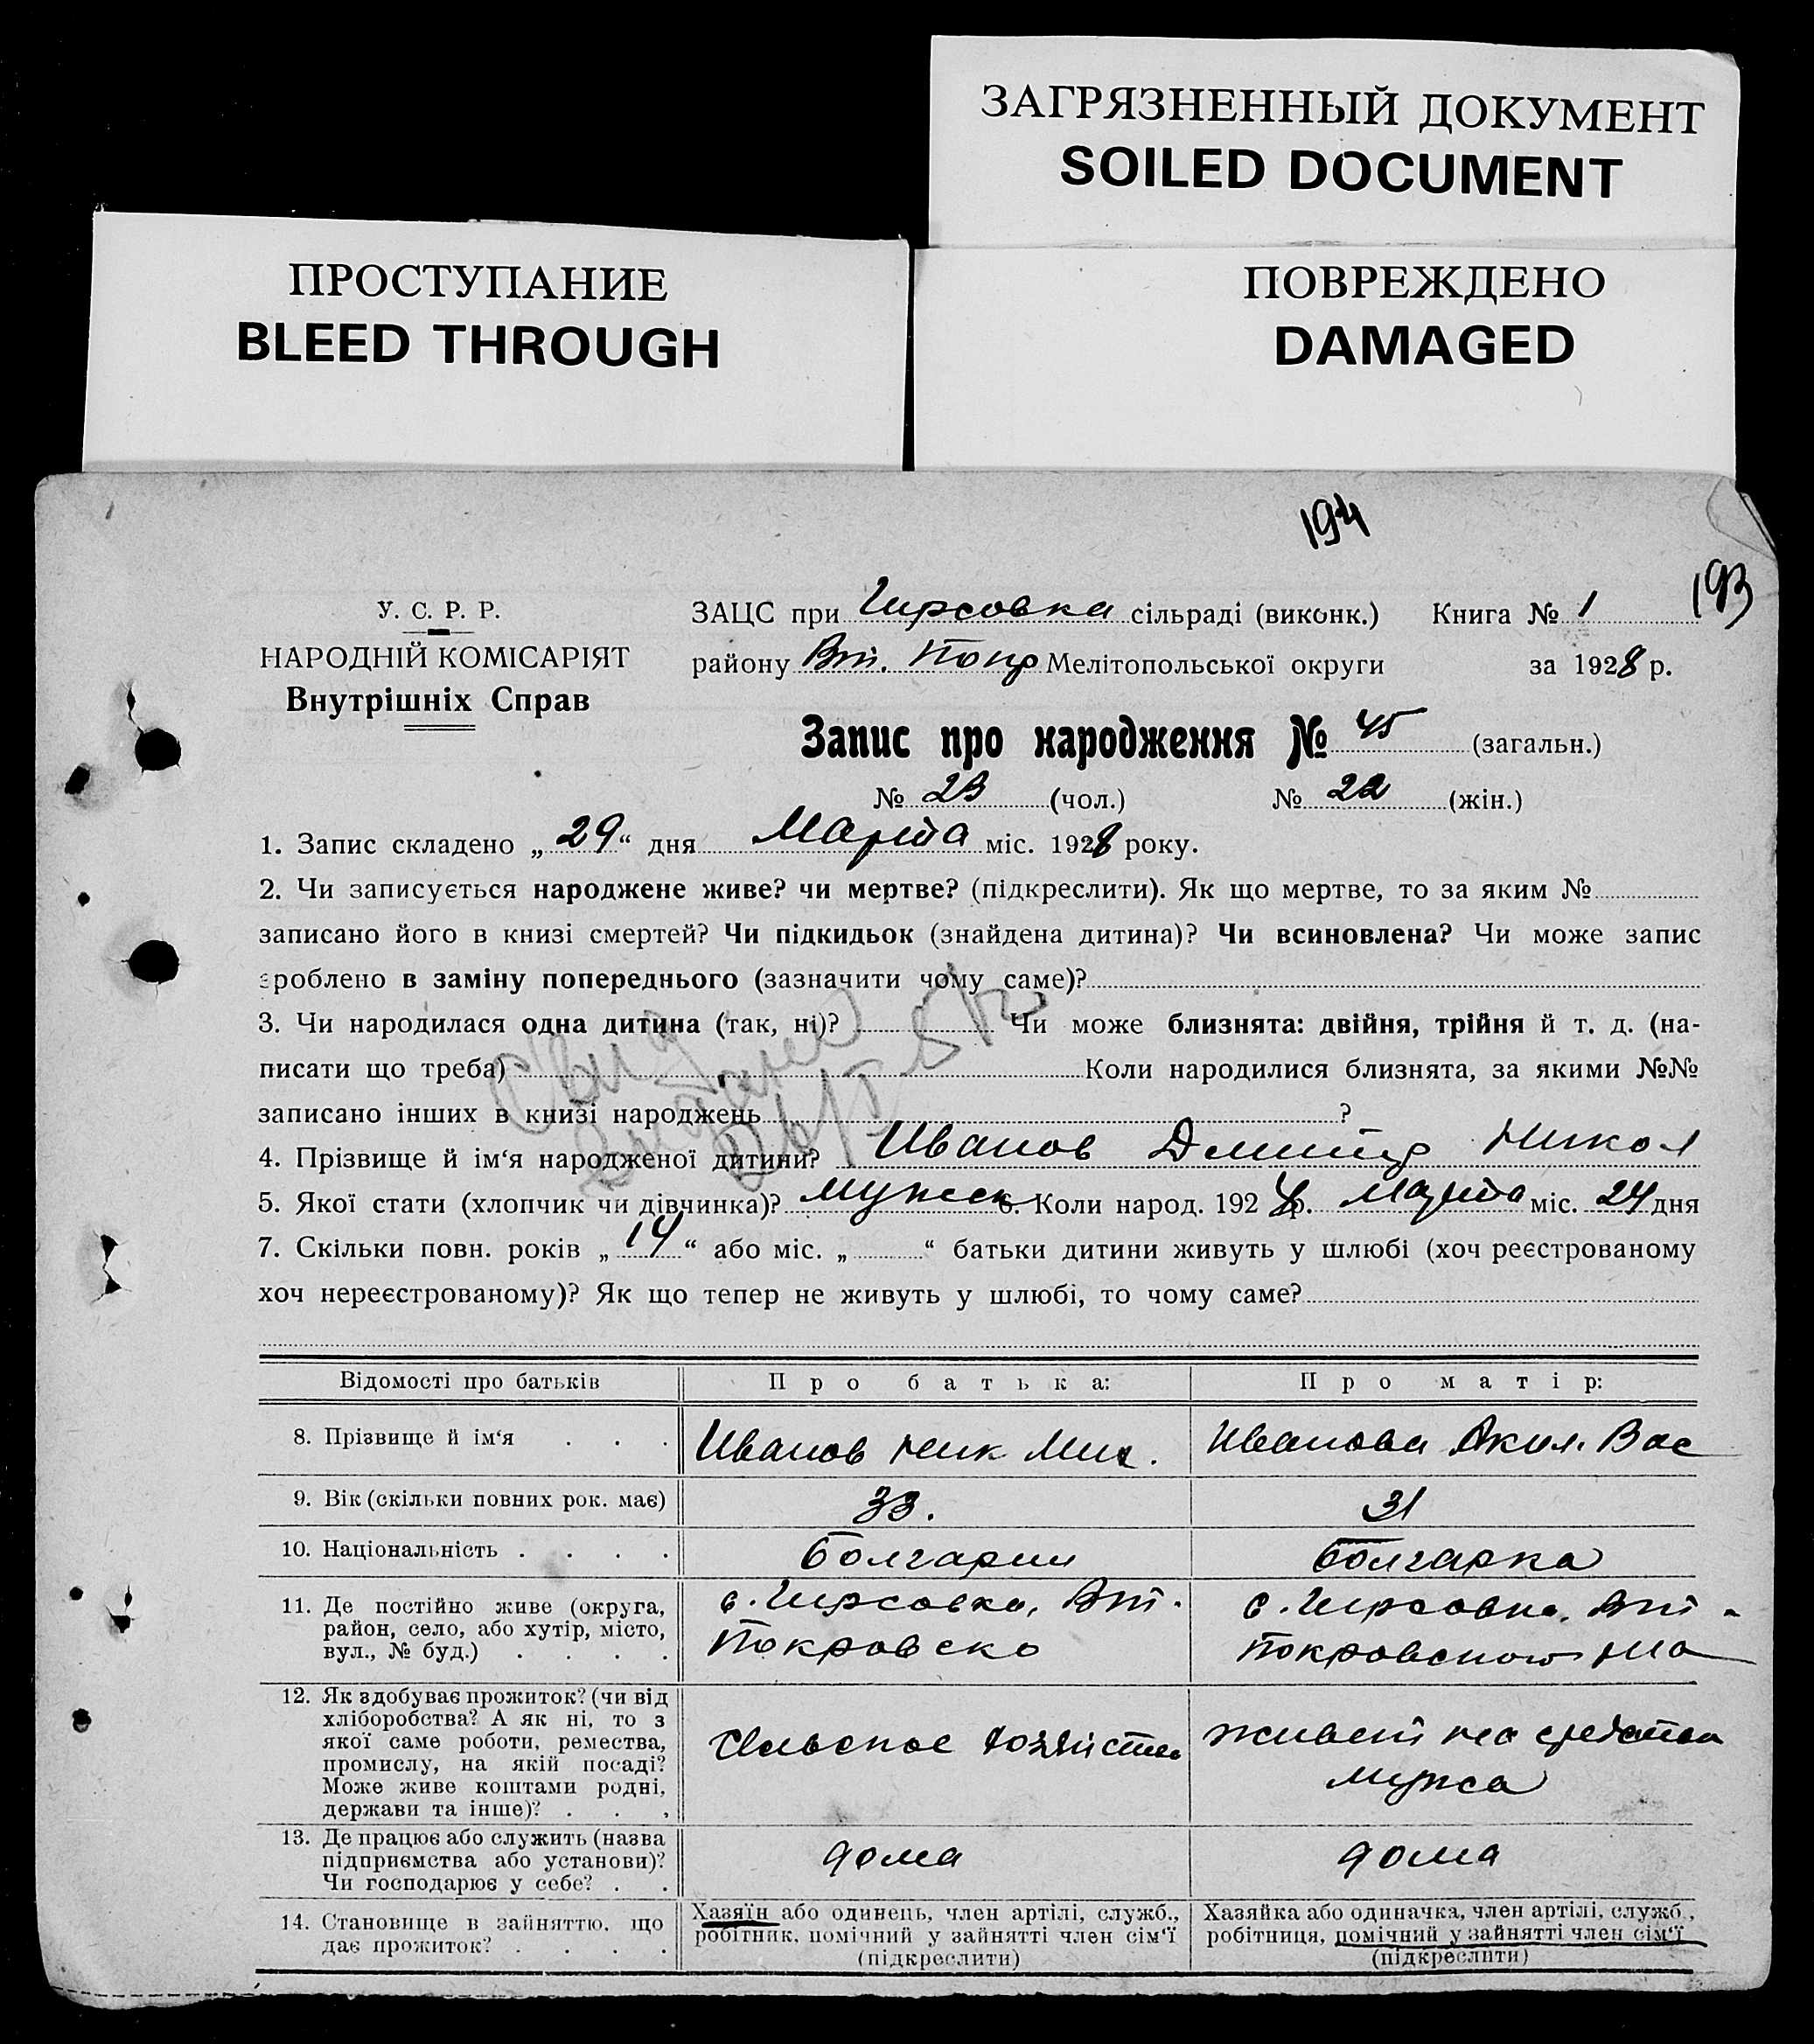 ЗАГРЯЗНЕННЫЙ ДОКУМЕНТ
SOILED DOCUMENT
ПРОСТУПАНИЕ
BLEED THROUGH
ПОВРЕЖДЕНО
DAMAGED
194
193
У. С. Р. Р.
НАРОДНІЙ КОМІСАРІЯТ
Внутрішніх Справ
ЗАЦС при Гирсовка сільраді (виконк.) Книга № 1
району Вт. Покр Мелітопольської округи за 1928 р.
Запис про народження № 45 (загальн.)
№ 23 (чол.) № 22 (жін.)
1. Запис складено „29“ дня Марта міс. 1928 року.
2. Чи записується народжене живе? чи мертве? (підкреслити). Як що мертве, то за яким №
записано його в книзі смертей? Чи підкидьок (знайдена дитина)? Чи всиновлена? Чи може запис
зроблено в заміну попереднього (зазначити чому саме)?
3. Чи народилася одна дитина (так, ні)? Чи може близнята: двійня, трійня й т. д. (на-
писати що треба) Коли народилися близнята, за якими №№
записано інших в книзі народжень ?
4. Прізвище й ім‘я народженої дитини? Иванов Дмитр Никол
5. Якої стати (хлопчик чи дівчинка)? Мужск 6. Коли народ. 1928 р. Марта міс. 24 дня
7. Скільки повн. років „14“ або міс. „ “ батьки дитини живуть у шлюбі (хоч реєстрованому
хоч нереєстрованому)? Як що тепер не живуть у шлюбі, то чому саме?
Відомості про батьків Про батька: Про матір:
8. Прізвище й ім‘я . . . Иванов Ник Мих. Иванова Акил. Вас
9. Вік (скільки повних рок. має) 33. 31
10. Національність . . . . Болгарин Болгарка
11. Де постійно живе (округа,
район, село, або хутір, місто,
вул., № буд.) . . . .
с. Гирсовка, Вт.
Покровско
с. Гирсовка, Вт-
Покровского
12. Як здобуває прожиток? (чи від
хліборобства? А як ні, то з
якої саме роботи, ремества,
промислу, на якій посаді?
Може живе коштами родні,
держави та інше)? . . .
Сельское хозяйство
живет на средства
мужа
13. Де працює або служить (назва
підприємства або установи)?
Чи господарює у себе? . .
дома
дома
14. Становище в зайняттю, що
дає прожиток? . . . .
Хазяїн або одинець, член артілі, служб.,
робітник, помічний у зайнятті член сім‘ї
(підкреслити)
Хазяйка або одиначка, член артілі, служб.,
робітниця, помічний у зайнятті член сім‘ї
(підкреслити)